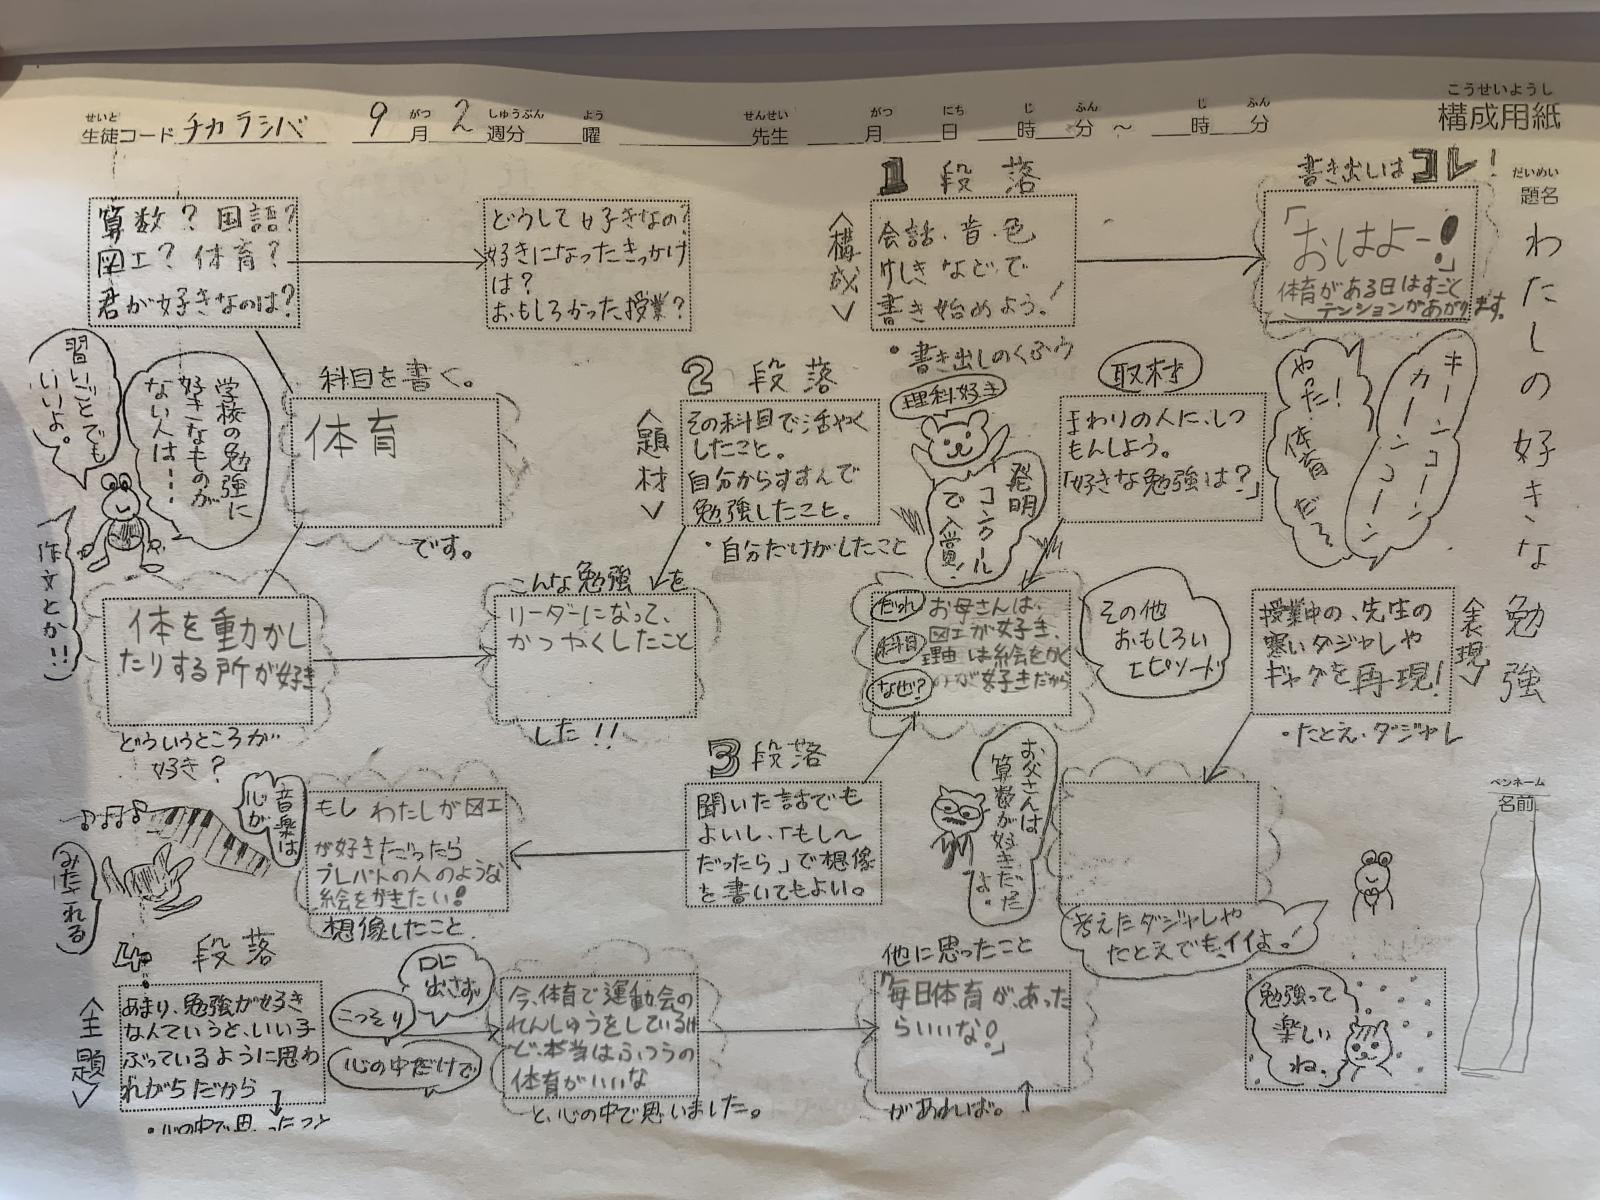 こうせいようし
構成用紙
せいと
生徒コード チカラシバ
がつ しゅうぶん よう
9月 2週分 曜
せんせい
先生
がつ にち じ ふん じ ふん
月 日 時 分 ～ 時 分
だいめい
題名
わたしの好きな勉強
ペンネーム
名前
1 段落
<構成>
書き出しはコレ!
会話・音・色
けしきなどで
書き始めよう!
・書き出しのくふう
「おはよー!」
体育がある日はすごく
テンションがあがります。
キーンコーン
カーンコーン
やった!
体育だぞ
算数? 国語?
図工? 体育?
君が好きなのは?
どうして好きなの?
好きになったきっかけ
は?
おもしろかった授業?
学校の勉強に
好きなものが
ない人は・・・
習いごとでも
いいよ。
作文とか!!
科目を書く。
体育
です。
体を動かし
たりする所が好き
どういうところが
好き?
2 段落
<題材>
その科目で活やく
したこと。
自分からすすんで
勉強したこと。
・自分だけがしたこと
こんな勉強を
リーダーになって、
かつやくしたこと
した!!
理科好き
発明
コンクール
で入賞!
取材
まわりの人に、しつ
もんしよう。
「好きな勉強は?」
だれ
科目
なぜ?
お母さんは、
図工が好き、
理由は絵をかく
のが好きだから
その他
おもしろい
エピソード
<表現>
授業中の、先生の
寒いダジャレや
ギャグを再現!
・たとえ・ダジャレ
考えたダジャレや
たとえでも、イイよ!
お父さんは
算数が好きだった
よ。
3 段落
聞いた話でも
よいし、「もし～
だったら」で想像
を書いてもよい。
もし わたしが図工
が好きだったら
プレバトの人のような
絵をがきたい!
想像したこと
音楽は
心が
みたされる
4 段落
<主題>
あまり、勉強が好き
なんていうと、いい子
ぶっているように思わ
れがちだから
・心の中で思ったこと
口に
出さず
こっそり
心の中だけで
今、体育で運動会の
れんしゅうをしているけ
ど、本当はふつうの
体育がいいな
と、心の中で思いました。
他に思ったこと
「毎日体育が、あった
らいいな!」
があれば。↑
勉強って
楽しい
ね。